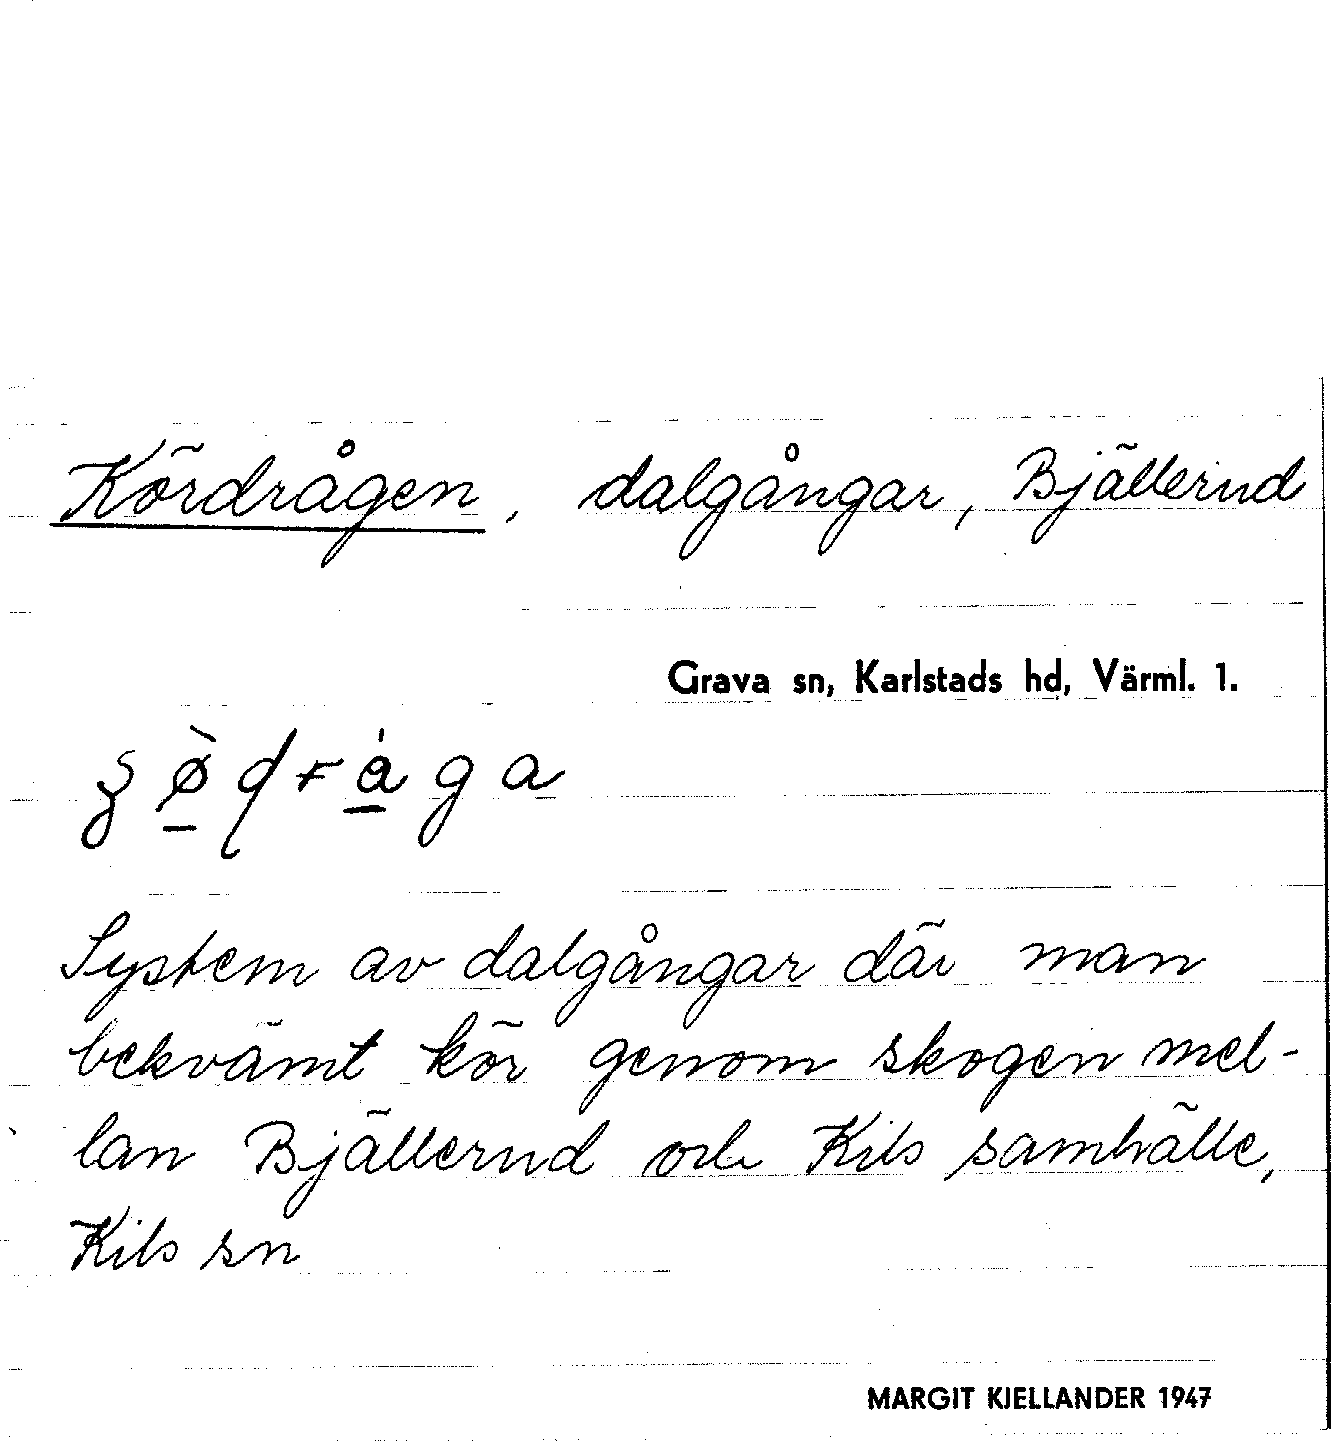 Kördrågen, dalgångar, Bjällernd
Grava sn, Karlstads hd, Värml. 1.
System av dalgångar där man
bekvämt kör genom skogen mel-
lan Bjällernd och Kils samhälle,
Kils sn
MARGIT KJELLANDER 1947